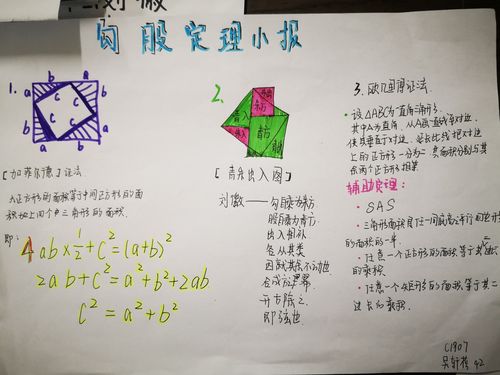 勾股定理小报
1.
a b a
b c c a
a c c b
b a b
[加菲尔德]证法
大正方形的面积等于中间正方形的面
积加上四个三角形的面积.
即:
4ab×1/2+c²=(a+b)²
2ab+c²=a²+b²+2ab
c²=a²+b²
2.
[青朱出入图]
刘徽——勾自乘为朱方
股自乘为青方
出入相补
各从其类
因就其余不动也
合成弦方之幂
开方除之
即弦也
3. 欧几里得证法.
设△ABC为直角三角形.
其中A为直角.从A画一直线至对边,
使其垂直于对边.延长此线把对边
上的正方形一分为二.其面积分别与其
余两个正方形相等
辅助定理:
SAS
三角形面积是任一同底同高之平行四边形
的面积的一半.
任意一个正方形的面积等于其二边长
的乘积.
任意一个矩形的面积等于其二
边长的乘积.
C1907
42